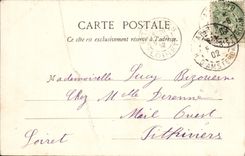 CARTE POSTALE
Ce côté est exclusivement réservé à l'adresse.
02
Mademoiselle Lucy Bizouerne
Chez Mlle Derenne
Mail Ouest
Loiret Pithiviers